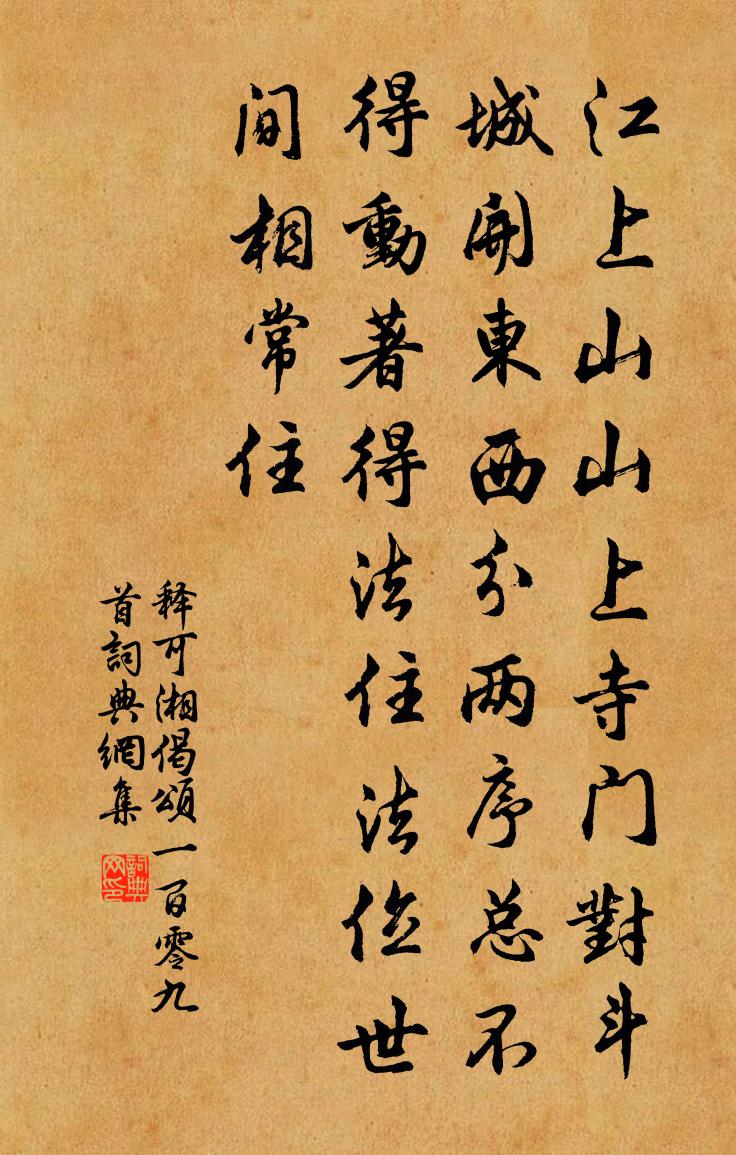 江上山山上寺门對斗
城開東西分两序总不
得動著得法住法位世
间相常住
释可湘偈頌一百零九
首詞典網集
詞典
网印